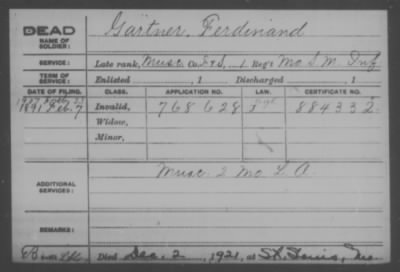 DEAD
NAME OF SOLDIER: Gärtner, Ferdinand
SERVICE: Late rank, Musc. Co. F&S, 1 Reg't Mo S. M. Inf
TERM OF SERVICE: Enlisted , 1 Discharged , 1
DATE OF FILING. CLASS. APPLICATION NO. LAW. CERTIFICATE NO.
1891 Feb. 7 Invalid, 768628 884332
Widow,
Minor,
ADDITIONAL SERVICES: Musc. 2 Mo L. A.
REMARKS:
Died Dec. 2, 1921, at St. Louis, Mo.